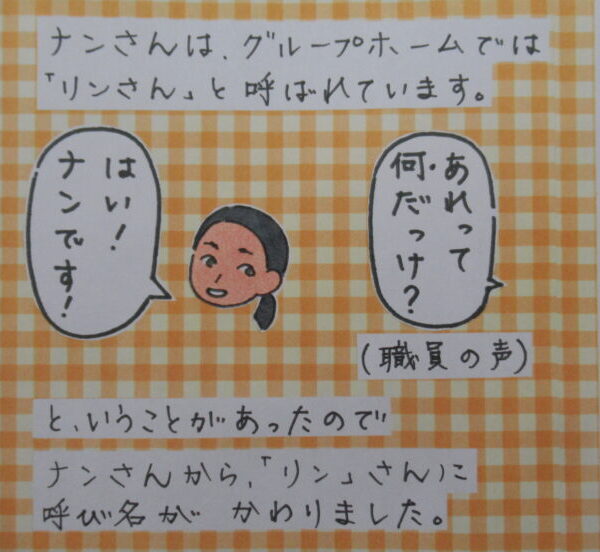 ナンさんは、グループホームでは
「リンさん」と呼ばれています。
あれって
何だっけ?
はい!
ナンです!
(職員の声)
と、いうことがあったので
ナンさんから、「リン」さんに
呼び名が かわりました。